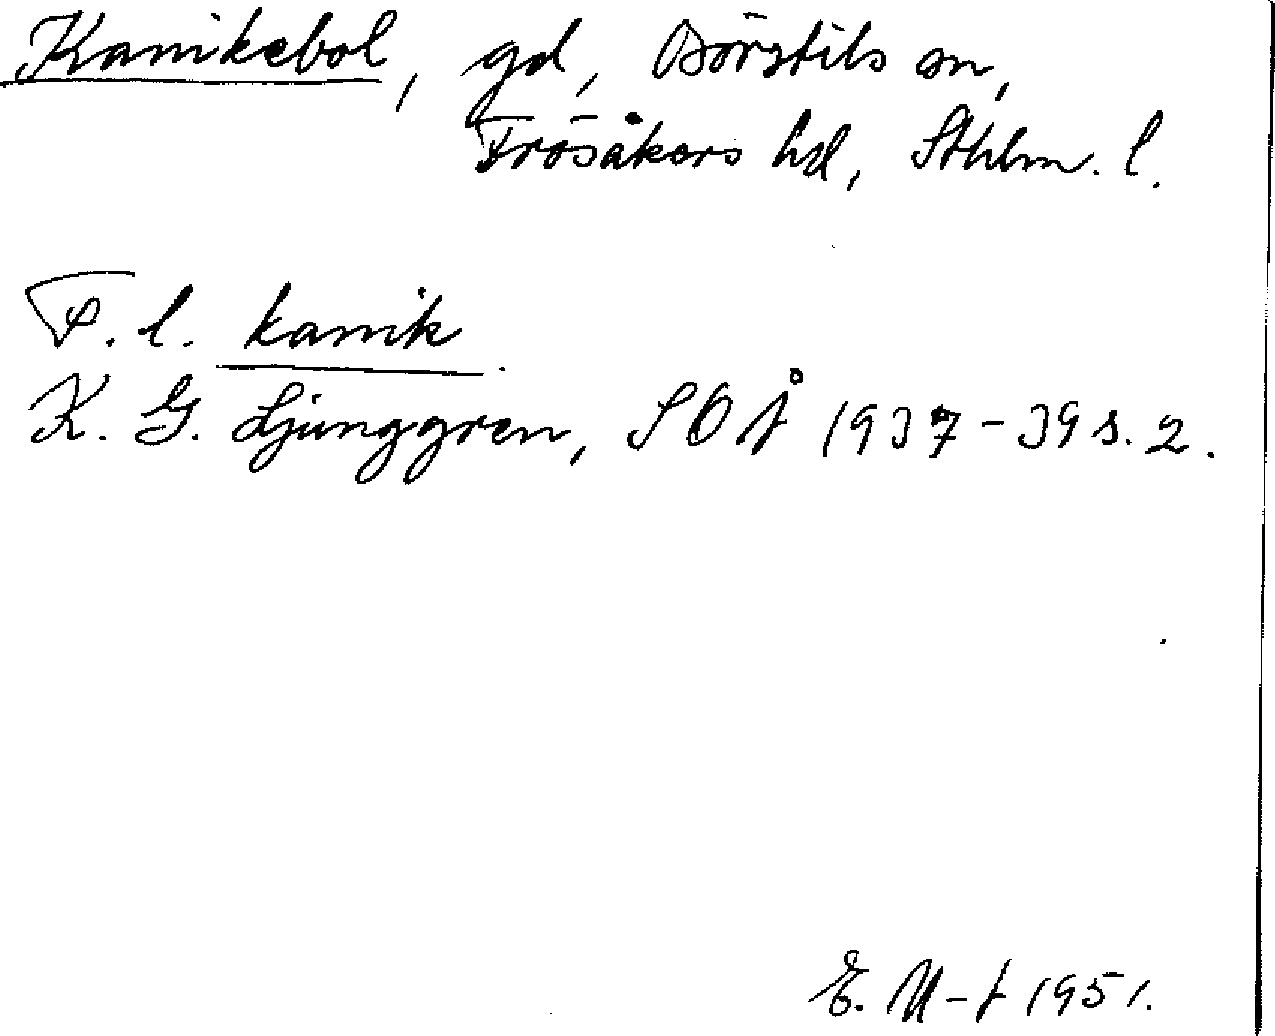 Kanikebol, gd, Börstils sn,
Frösåkers hd, Sthlm. l.
F. l. kanik.
K. G. Ljunggren, SOÅ 1937-39 s. 2.
E. 1951.